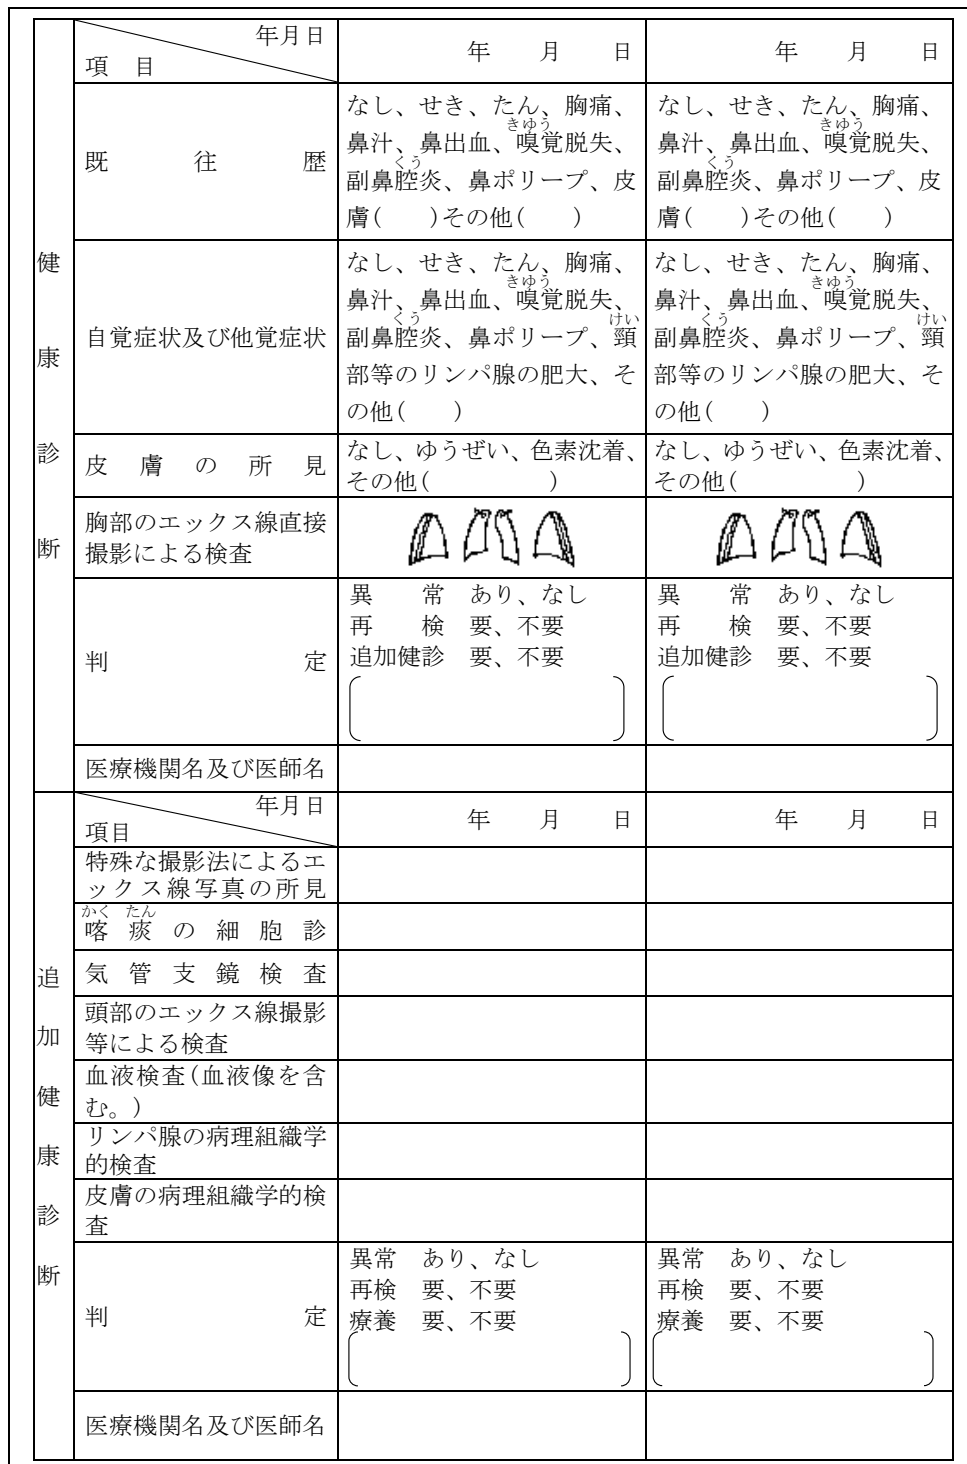 健康診断
年月日
項　目
年　　月　　日
年　　月　　日
既往歴
なし、せき、たん、胸痛、
きゆう
鼻汁、鼻出血、嗅覚脱失、
くう
副鼻腔炎、鼻ポリープ、皮
膚(　　)その他(　　)
なし、せき、たん、胸痛、
きゆう
鼻汁、鼻出血、嗅覚脱失、
くう
副鼻腔炎、鼻ポリープ、皮
膚(　　)その他(　　)
自覚症状及び他覚症状
なし、せき、たん、胸痛、
きゆう
鼻汁、鼻出血、嗅覚脱失、
くう　けい
副鼻腔炎、鼻ポリープ、頸
部等のリンパ腺の肥大、そ
の他(　　)
なし、せき、たん、胸痛、
きゆう
鼻汁、鼻出血、嗅覚脱失、
くう　けい
副鼻腔炎、鼻ポリープ、頸
部等のリンパ腺の肥大、そ
の他(　　)
皮膚の所見
なし、ゆうぜい、色素沈着、
その他(　　　　　)
なし、ゆうぜい、色素沈着、
その他(　　　　　)
胸部のエックス線直接
撮影による検査
判定
異　　常　あり、なし
再　　検　要、不要
追加健診　要、不要
異　　常　あり、なし
再　　検　要、不要
追加健診　要、不要
医療機関名及び医師名
追加健康診断
年月日
項目
年　　月　　日
年　　月　　日
特殊な撮影法によるエ
ックス線写真の所見
かく　たん
喀痰の細胞診
気管支鏡検査
頭部のエックス線撮影
等による検査
血液検査(血液像を含
む。)
リンパ腺の病理組織学
的検査
皮膚の病理組織学的検
査
判定
異常　あり、なし
再検　要、不要
療養　要、不要
異常　あり、なし
再検　要、不要
療養　要、不要
医療機関名及び医師名